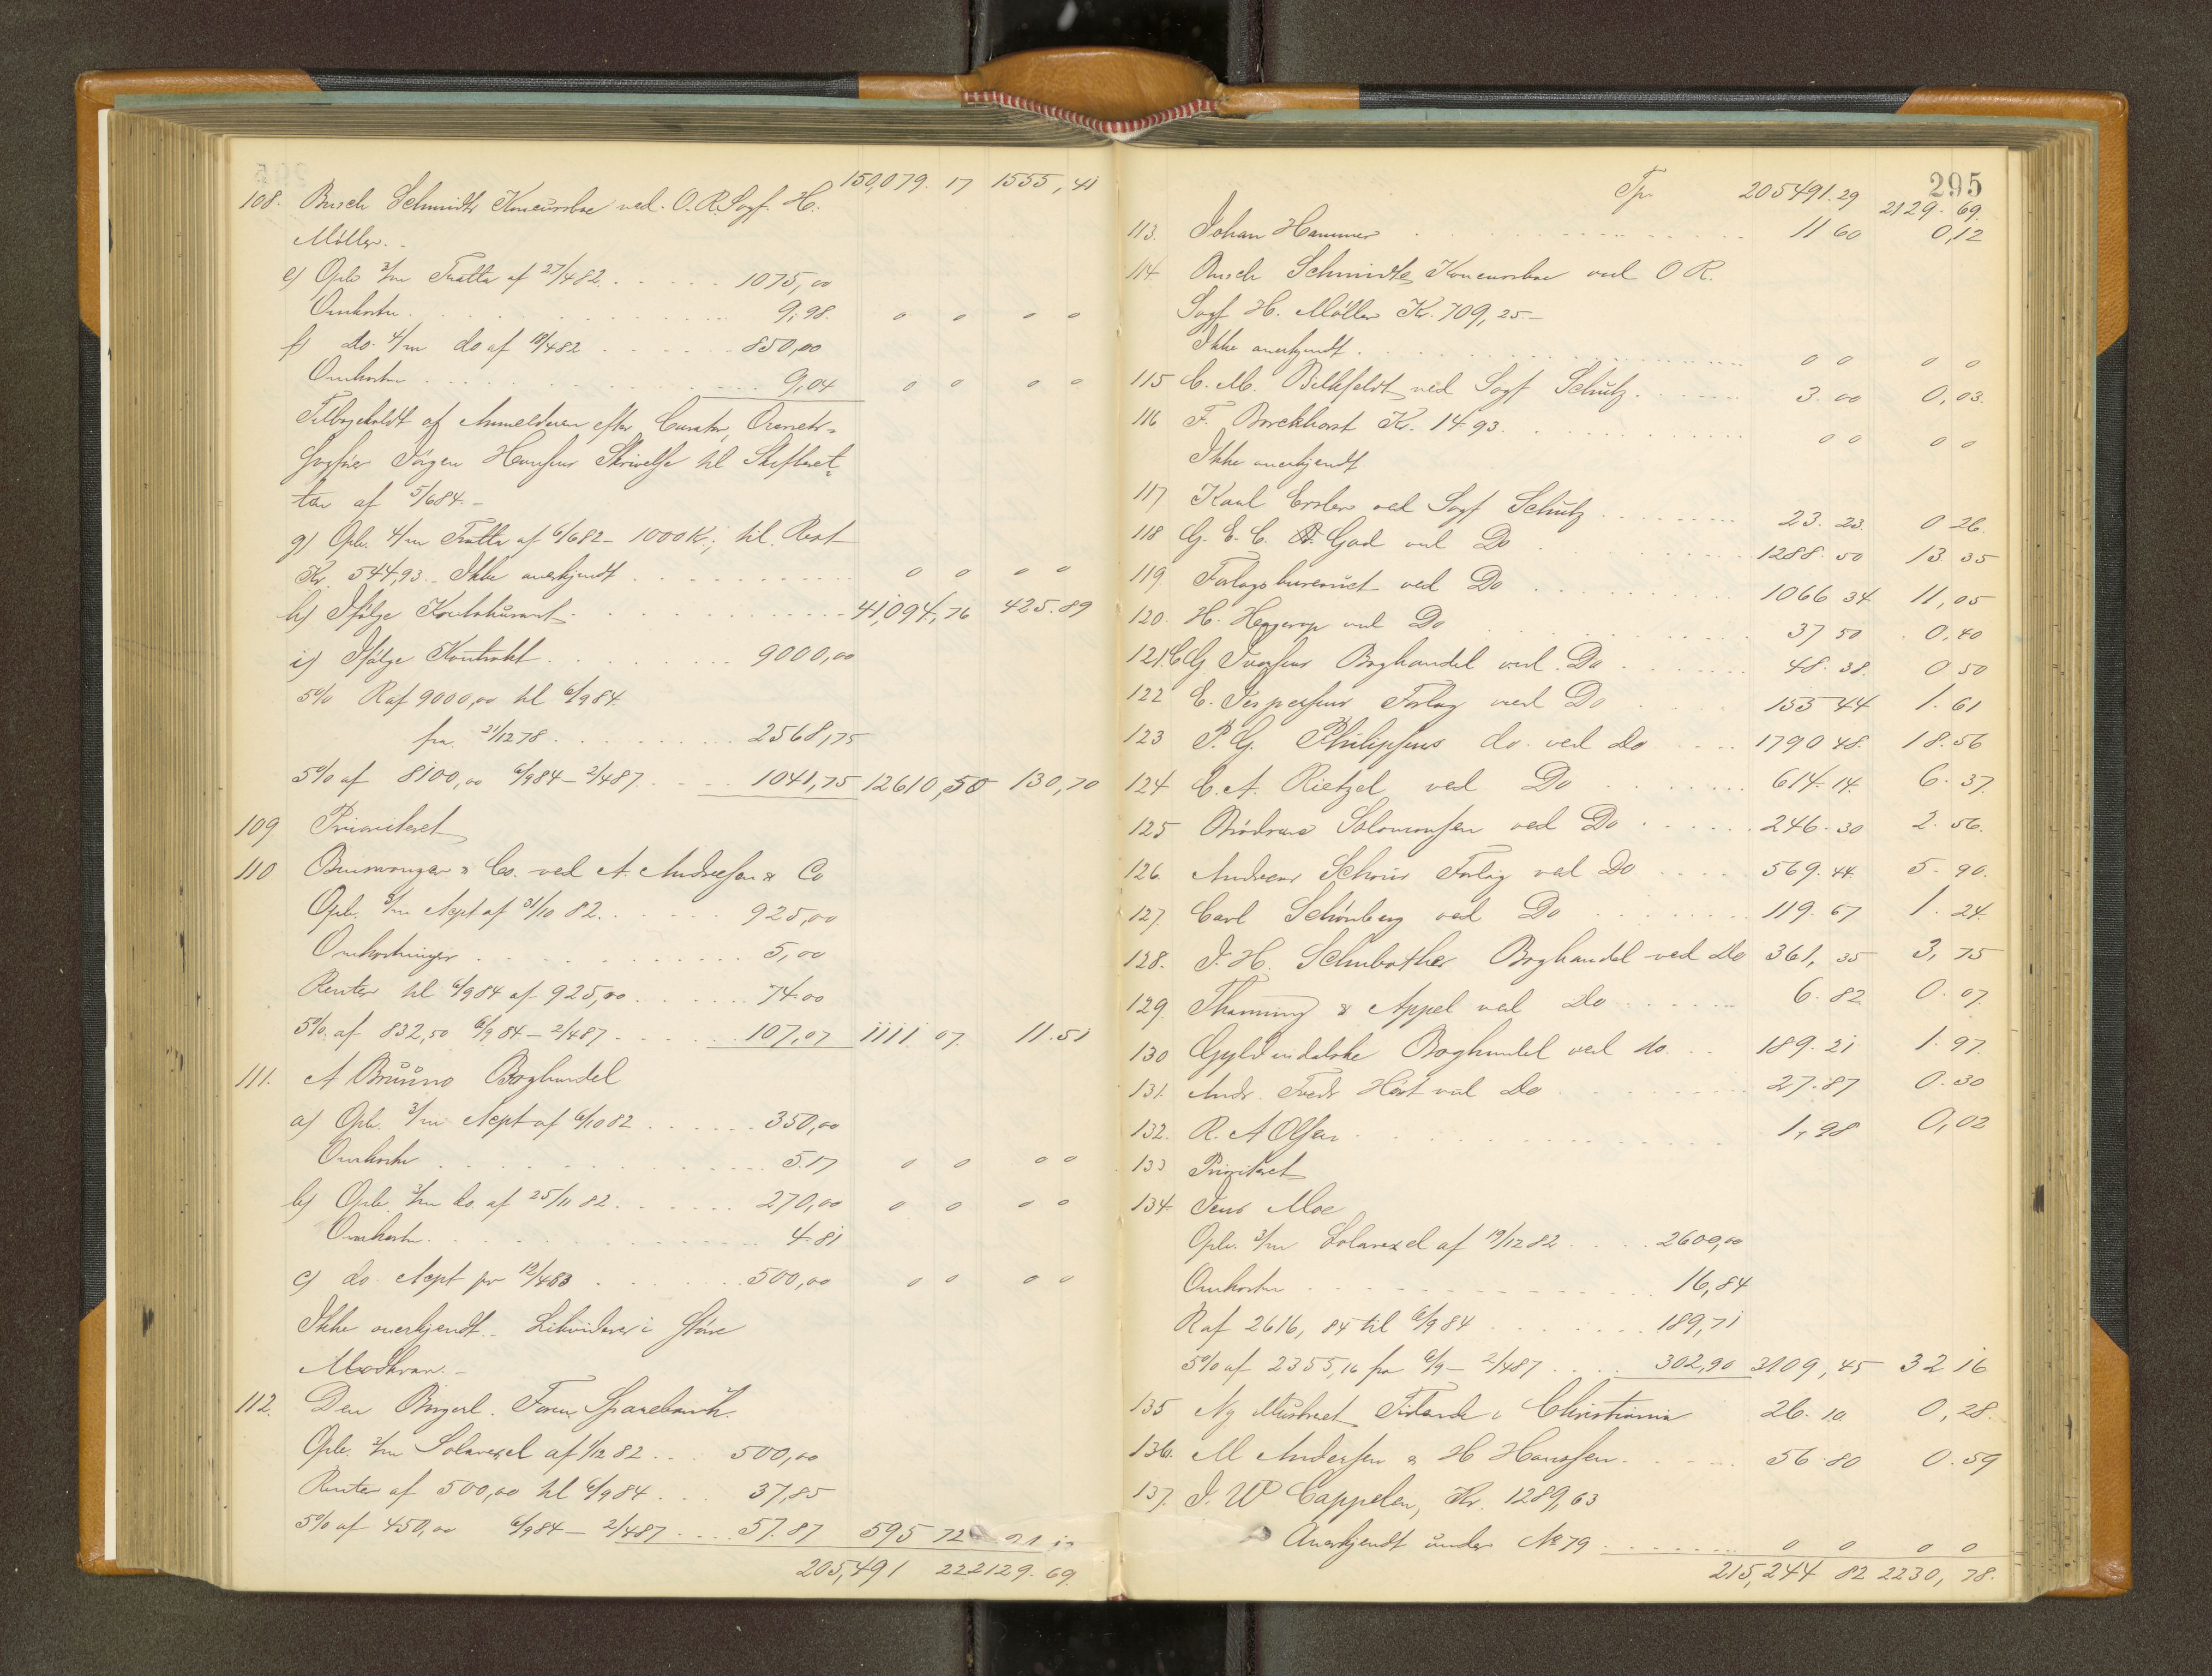 150,079. 17 1555,41
108. Busch Schmidts Koncursbo ved. O.R.Sagf. H.
Möller. -
e) Opb 3/m Tratte af 27/4 82. . . . . . 1075,00
Omkostn. . . . . 9,98. 0 0 0 0
f) do. 4/m do af 18/4 82 . . . . . 850,00
Omkostn . . . . . 9,04 0 0 0 0
Tilbageholdt af Anmelderen efter Curator, Overrets-
sagfører Jörgen Hansens Skrivelse til Skifteret-
ten af 5/6 84. -
g) Opb. 4/m Tratte af 6/6 82 - 1000 K; til Rest
Kr. 544,93. - Ikke anerkjendt . . . . . 0 0 0 0
h) Ifölge Kontokurant . . . . . 41,094,76 425.89
i) Ifölge Kontrakt . . . . . 9000,00
5% R af 9000,00 til 6/9 84.
fra 21/12 78 . . . . . 2568,75
5% af 8100,00 6/9 84 - 2/4 87. . . . 1041,75 12610,50 130,70
109 Prioriteret
110 Binswanger & Co. ved A. Andresen & Co
Opb. 3/m Acpt af 31/10 82. . . . . 925,00
Omkostninger . . . . . 5,00
Renter til 6/9 84 af 925,00 . . . . . 74.00
5% af 832,50 6/9 84 - 2/4 87 . . . . . 107,07 1111. 07. 11.51
111. A Bruuns Boghandel
a) Opb. 3/m Acpt af 6/10 82 . . . . . 350,00
Omkostn . . . . . 5.17 0 0 0 0
b) Opb. 3/m do. af 25/11 82 . . . . . 270,00 0 0 0 0
Omkostn. . . . . 4.81
c) do. Acpt pr 12/4 83 . . . . . 500,00 0 0 0 0
Ikke anerkjendt. - Likvideres i större
Modkrav. -
112. Den Borgerl. Foren. Sparebank.
Opb. 3/m Solavexel af 1/12 82 . . . 500,00
Renter af 500,00 til 6/9 84 . . . 37,85
5% af 450,00 6/9 84 - 2/4 87 . . . . 57.87 595 72
205,491 22 2129. 69.
295
Tp. 205491.29 2129. 69.
113. Johan Hammer . . . . . 11 60 0,12
114. Busch Schmidts Koncursbo ved O R.
Sagf H. Möller Kr. 709,25.-
Ikke anerkjendt . . . . . 0 0 0 0
115 C. M. Bilkfeldt ved Sagf Schulz . . . . . 3. 00 0,03.
116 F. Borckhorst Kr. 14.93. . . . . 0 0 0 0
Ikke anerkjendt
117 Karl Erslev ved Sagf Schulz . . . . . 23. 23. 0 26.
118 G. E. C. Gad ved Do . . . . . 1288. 50 13 35
119 Forlagsbureauet ved Do . . . . . 1066 34 11,05
120. H. Hagerup ved Do . . . . . 37 50 0,40
121. C G. Iversens Boghandel ved. Do . . . . . 48. 38. 0 50
122 E. Jespersens Forlag ved Do . . . . 155 44 1. 61
123 P. G. Philipsens do. ved do . . . . 1790 48. 18.56
124 C. A. Rietzel ved Do . . . . . 614. 14. 6. 37.
125 Brödrene Salomonsen ved Do . . . . . 246. 30 2. 56.
126. Andreas Schous Forlag ved Do . . . . 569. 44. 5. 90.
127. Carl Schönberg ved Do . . . . . 119. 67 1. 24.
128. J. H. Schubothes Boghandel ved Do 361, 35 3, 75
129. Thaning & Appel ved Do . . . . . 6. 82 0. 07.
130 Gyldendalske Boghandel ved do. . . 189. 21 1. 97.
131. Andr. Fredr Höst ved Do . . . . . 27. 87 0. 30
132. R. A Olsen . . . . . 1, 98 0,02
133 Prioriteret
134. Jens Moe
Opb. 3/m Solavexel af 19/12 82 . . . . 2600,00
Omkostn . . . . . 16,84
R af 2616, 84 til 6/9 84 . . . . . 189,71
5% af 2355,16 fra 6/9 - 2/4 87 . . . . 302,90 3109, 45 32 16
135 Ny Illustreret Tidende i Christiania 26. 10. 0, 28.
136. M Andersen & H Hanssen. . . . . 56. 80 0. 59
137. J. W Cappelen, Kr. 1289,63
Anerkjendt under No 79 . . . . . 0 0 0 0
215,244 82 2230, 78.